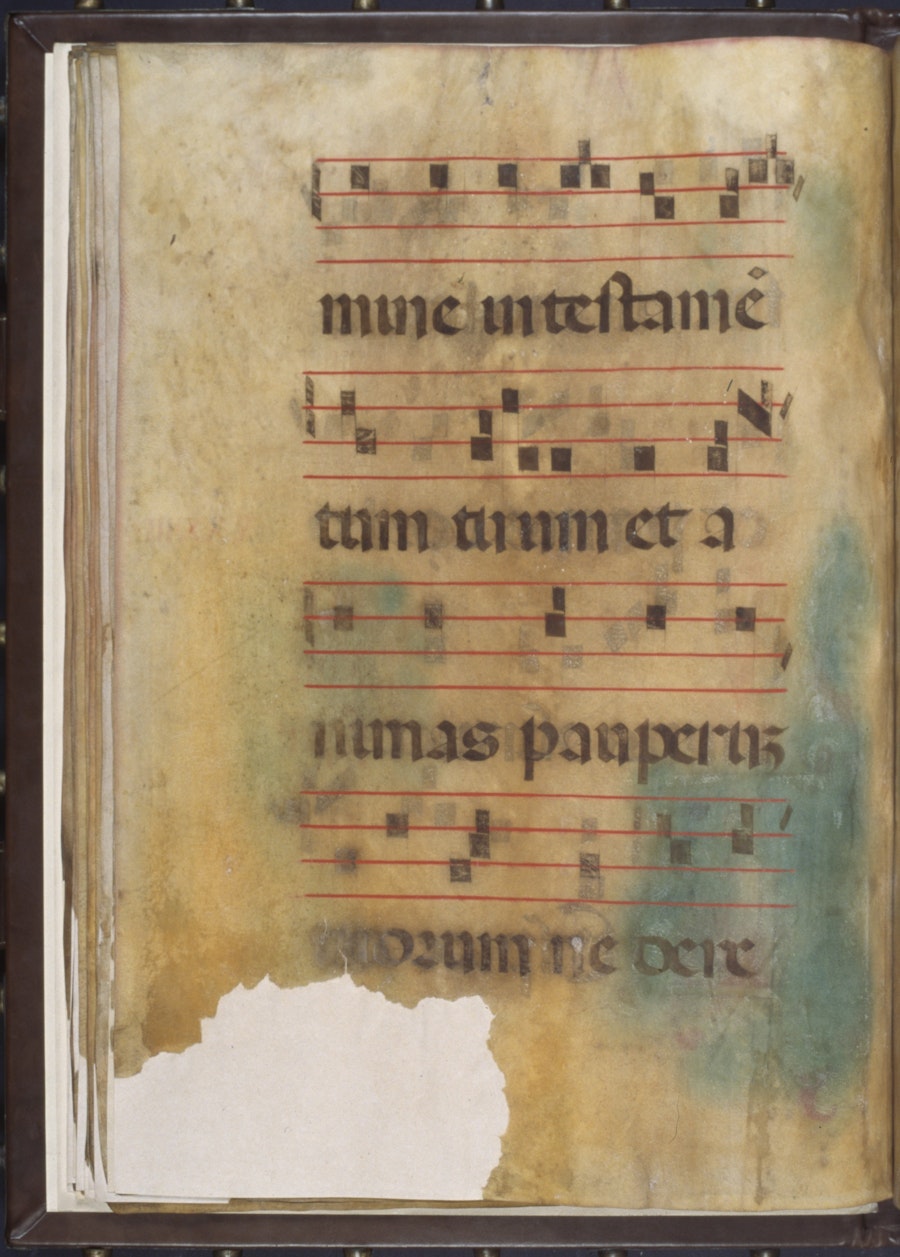 mine in testamē
tum tuum et a
nimas pauperuʒ
tuorum ne dere